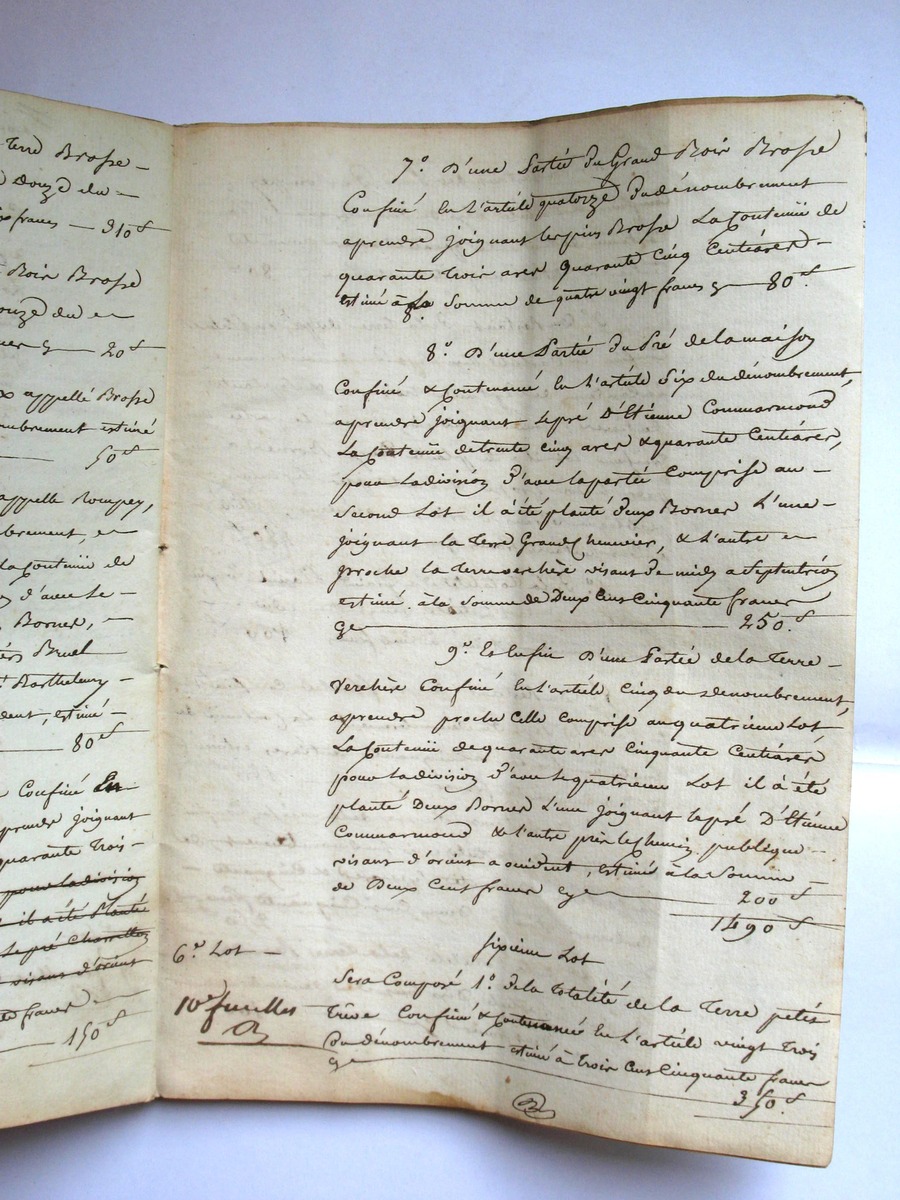 Terre Brosse –
Douze du –
francs — 210 f
Bois Brosse
ouze du en
20 f
appellé Brosse
ombrement estimé
50 f
appellé Rompey,
brement, en
La Contenüe de
d'avec Le –
Bornes, –
Bruel
Barthelemy –
dent, estimé –
80 f
Confiné En
prendre joignant
quarante Trois –
pour la division
il a été Planté
Le pré Charretton
visant d'orient
francs —
150 f
7.º D'une Partie du Grand Bois Brosse
Confiné En L'article quatorze Du dénombrement
a prendre joignant les pins Brosse La Contenüe de
quarante trois ares quarante Cinq Centiares –
estimé à La Somme de quatre vingt francs cy — 80. f
8.º D'une Partie Du Pré de la maison
Confiné & Contenancé En L'article Six du dénombrement,
a prendre joignant Le pré D'Etienne Commarmond
La Contenüe de trente Cinq ares & quarante Centiares,
pour La division D'avec La partie Comprise au –
Second Lot il à été planté deux Bornes L'une –
joignant la Terre Grand Chenevier, & L'autre –
proche la Terre verchère visant De midy a Septentrion
estimé à la Somme de Deux Cens Cinquante francs
Cy — 250. f
9.º Et Enfin D'une Partie de la Terre –
Verchère Confiné En L'article Cinq du dénombrement,
a prendre proche Celle Comprise au quatrieme Lot,
La Contenüe de quarante ares Cinquante Centiares
pour La division D'avec Le quatrieme Lot il à été
planté Deux Bornes L'une joignant Le pré D'Etienne
Commarmond & L'autre près Le Chemin publique –
visant d'orient a occident, estimé à La Somme –
de Deux Cent francs cy — 200 f
1490. f
Sixième Lot
6.e Lot –
Sera Composé 1.º De la Totalité de la Terre petit
10e feuillet
Confiné & Contenancé En L'article vingt Trois
Du dénombrement estimé à Trois Cens Cinquante francs
Cy — 350. f